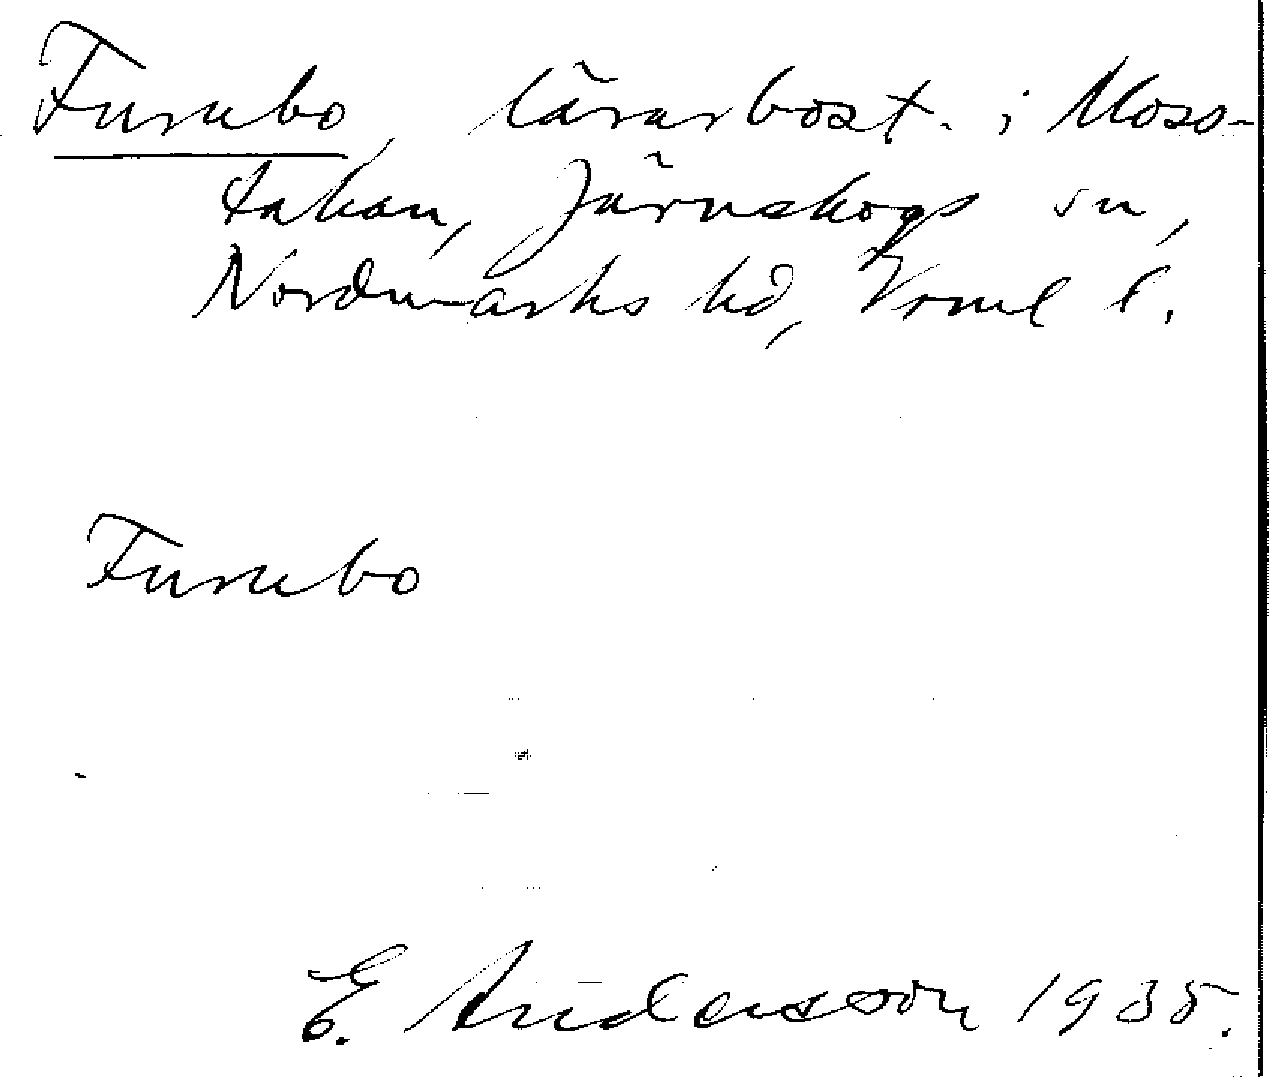 Furubo, lärarbost. i Moss-
takan, Järnskogs sn,
Nordmarks hd, Vrml l.
Furubo
E. Andersson 1935.